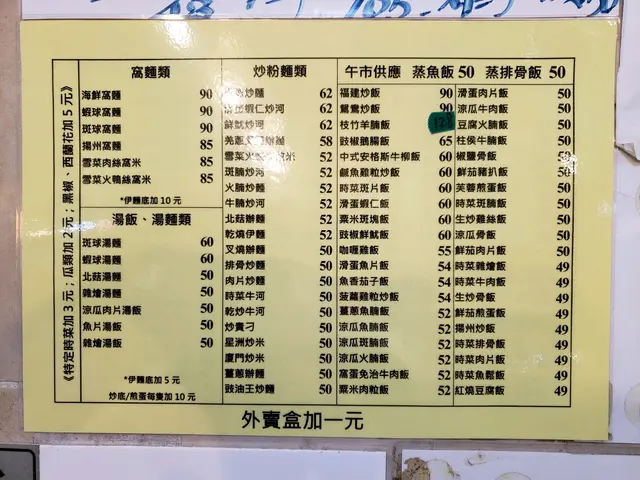 《特定時菜加3元；瓜類加2元；黑椒、西蘭花加5元》
窩麵類
海鮮窩麵 90
蝦球窩麵 90
斑球窩麵 90
揚州窩麵 85
雪菜肉絲窩米 85
雪菜火鴨絲窩米 85
*伊麵底加10元
湯飯、湯麵類
斑球湯麵 60
蝦球湯麵 60
北菇湯麵 50
雜燴湯麵 50
涼瓜肉片湯飯 50
魚片湯飯 50
雜燴湯飯 50
*伊麵底加5元
炒底/煎蛋每隻加10元
炒粉麵類
炒麵 62
蝦仁炒河 62
鮮魷炒河 62
58
雪菜火 米 52
斑腩炒河 52
火腩炒麵 52
牛腩炒河 52
北菇辦麵 52
乾燒伊麵 52
叉燒辦麵 50
排骨炒麵 50
肉片炒麵 50
時菜牛河 50
乾炒牛河 50
炒貴刁 50
星洲炒米 50
廈門炒米 50
薑蔥辦麵 50
豉油王炒麵 50
午市供應 蒸魚飯 50 蒸排骨飯 50
福建炒飯 90
鴛鴦炒飯 90
枝竹羊腩飯 128
豉椒鵝腸飯 65
中式安格斯牛柳飯 60
鹹魚雞粒炒飯 60
時菜斑片飯 60
滑蛋蝦仁飯 60
粟米斑塊飯 60
豉椒鮮魷飯 60
咖喱雞飯 55
滑蛋魚片飯 54
魚香茄子飯 54
菠蘿雞粒炒飯 54
薑蔥魚腩飯 52
涼瓜魚腩飯 52
涼瓜斑腩飯 52
涼瓜火腩飯 52
窩蛋免治牛肉飯 52
粟米肉粒飯 52
滑蛋肉片飯 50
涼瓜牛肉飯 50
豆腐火腩飯 50
柱侯牛腩飯 50
椒鹽骨飯 50
鮮茄豬扒飯 50
芙蓉煎蛋飯 50
時菜斑腩飯 50
生炒雞絲飯 50
涼瓜骨飯 50
鮮茄肉片飯 50
時菜雜燴飯 49
生炒骨飯 49
鮮茄煎蛋飯 49
揚州炒飯 49
時菜排骨飯 49
時菜肉片飯 49
時菜魚鬆飯 49
鮮茄牛肉飯 49
紅燒豆腐飯 49
外賣盒加一元